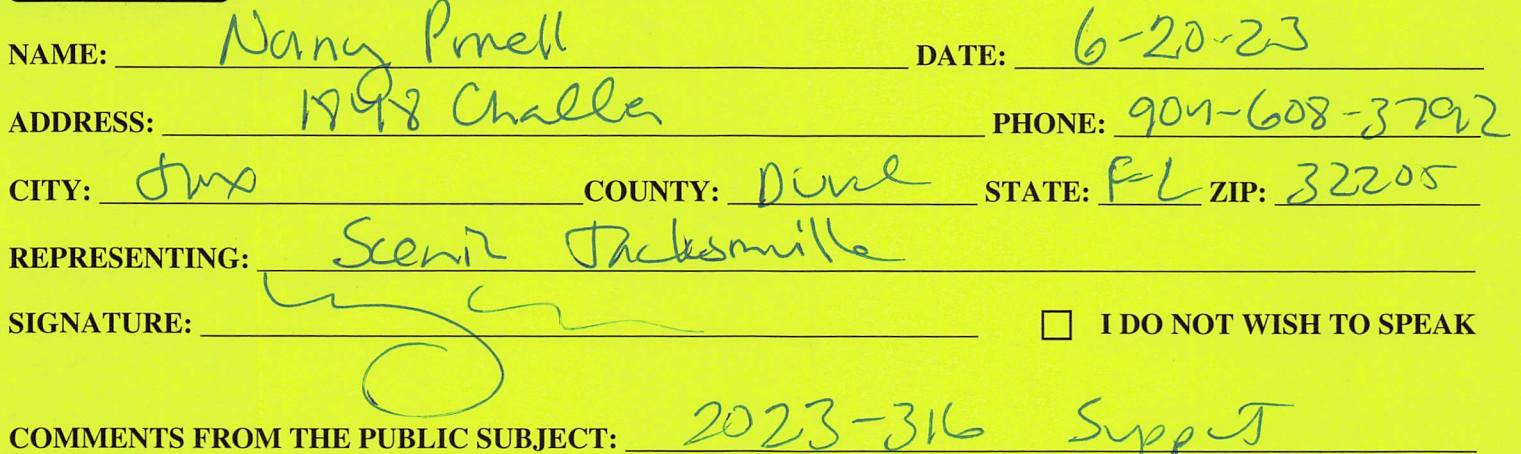 NAME: Nancy Powell DATE: 6-20-23
ADDRESS: 1848 Challen PHONE: 904-608-3792
CITY: Jax COUNTY: Duval STATE: FL ZIP: 32205
REPRESENTING: Scenic Jacksonville
SIGNATURE: I DO NOT WISH TO SPEAK
COMMENTS FROM THE PUBLIC SUBJECT: 2023-316 Support